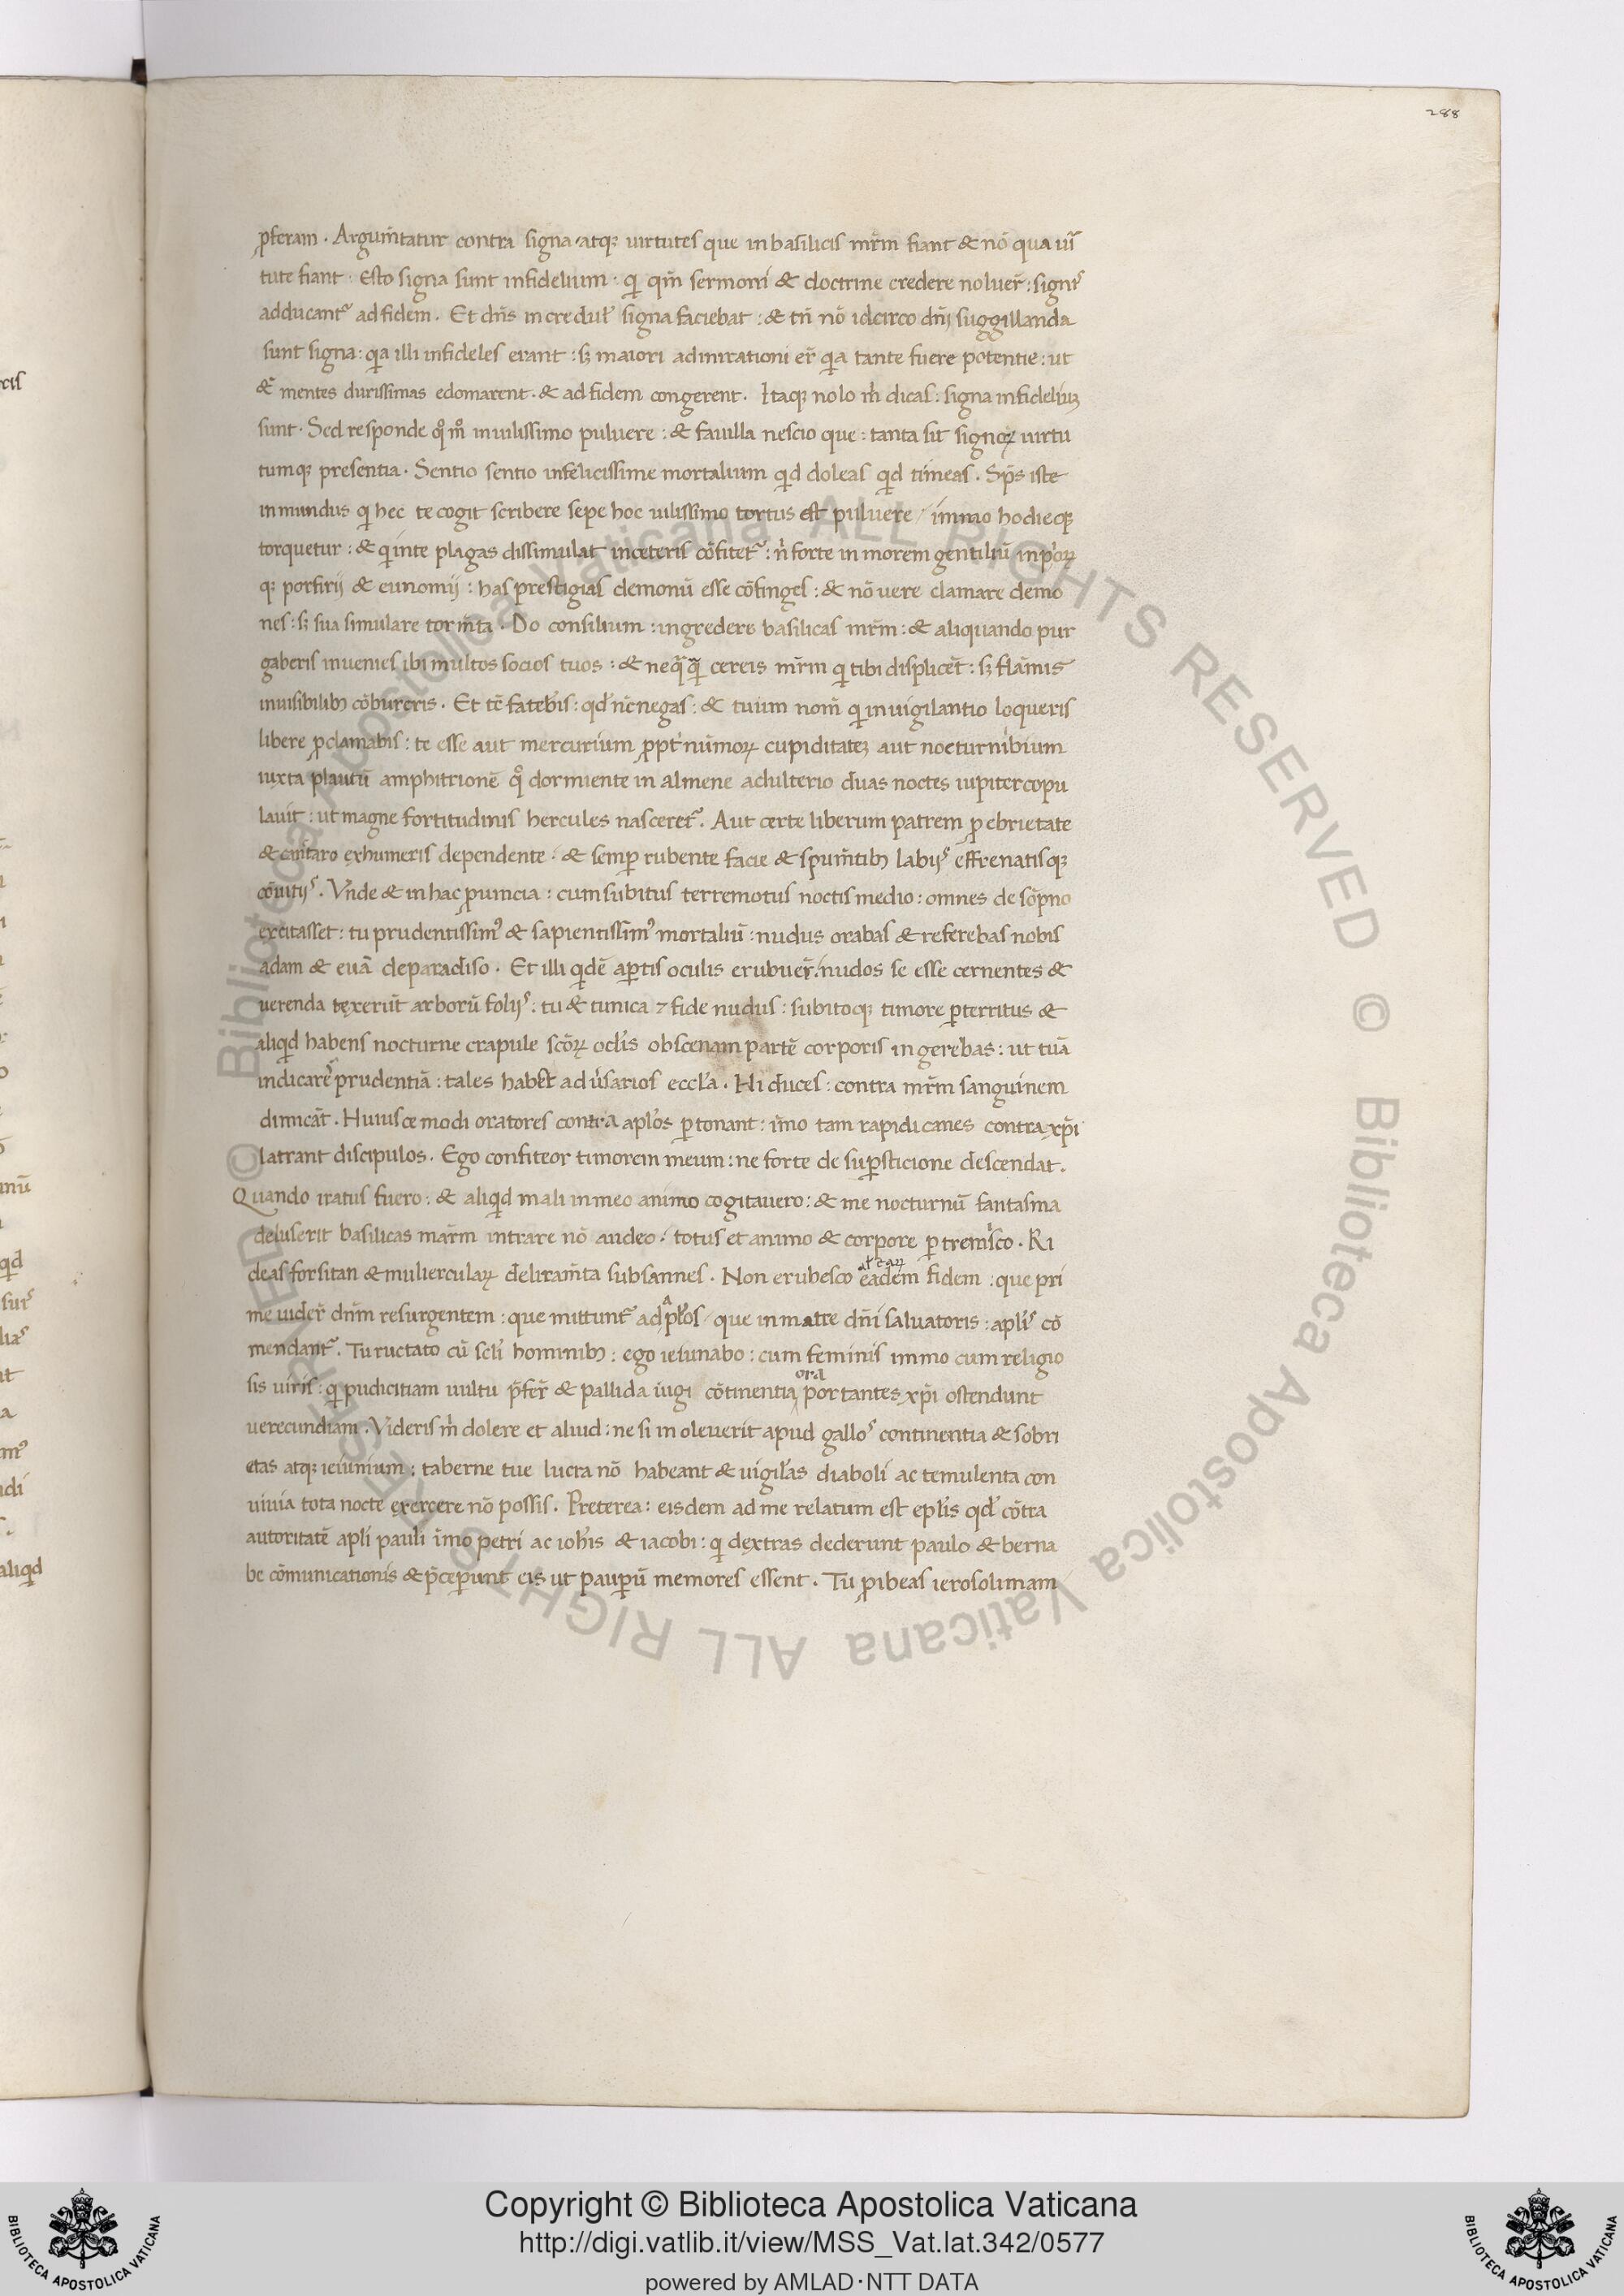 288
ꝓferam . Argum̄tatur contra signa atqꝫ uirtutes que in basilicis mr̄m fiant & nō qua uir̄
tute fiant . Esto signa sunt infidelium . qi qm̄ sermoni & doctrine credere noluer̄ : signis
adducant᷑ ad fidem . Et dn̄s incredul' signa faciebat : & tn̄ nō idcirco dn̄i suggillanda
sunt signa : qa illi infideles erant : sꝫ maiori admirationi er̄ qa tante fuere potentie : ut
& mentes durissimas edomarent . & ad fidem congerent . Itaqꝫ nolo m̄ dicas : signa infideliuꝫ
sunt . Sed responde qͦmͦ in uilissimo puluere : & fauilla nescio que : tanta sit signoꝝ uirtu
tumqꝫ presentia . Sentio sentio infelicissime mortalium qid doleas qid timeas . Sp̄s iste
inmundus qi hec te cogit scribere sepe hoc uilissimo tortus est puluere / immo hodieqꝫ
torquetur : & qi in te plagas dissimulat in ceteris cōfitet᷑ : n̄ forte in morem gentiliū inpioꝝ
qꝫ porfirij & eunomij : has prestigias demonū esse cōfinges : & nō uere clamare demo
nes : sꝫ sua simulare torm̄ta . Do consilium : ingredere basilicas mr̄m : & aliquando pur
gaberis inuenies ibi multos socios tuos : & neqͣqͣ cereis mr̄m qi tibi displicēt : sꝫ flāmis
inuisibilibꝫ cōbureris . Et tc̄ fateb'is : qd' nc̄ negas : & tuum nom̄ qi in uigilantio loqueris
libere ꝓclamabis : te esse aut mercurium ꝓpt' nūmoꝝ cupiditateꝫ aut nocturnibium
iuxta plautū amphitrionē qͦ dormiente in almene adulterio duas noctes iupiter copu
lauit : ut magne fortitudinis hercules nasceret᷑ . Aut certe liberum patrem ꝓ ebrietate
& cantaro ex humeris dependente . & semꝑ rubente facie & spum̄tibꝫ labijs effrenatisqꝫ
cōuitijs . Vnde & in hac ꝓuincia : cum subitus terremotus noctis medio : omnes de sōpno
excitasset : tu prudentissimꝰ & sapientissimꝰ mortaliū : nudus orabas & referebas nobis
adam & euā de paradiso . Et illi qidē aꝑtis oculis erubuer̄ . nudos se esse cernentes &
uerenda texerūt arborū folijs : tu & tunica ⁊ fide nudus : subitoqꝫ timore ꝑterritus &
aliqid habens nocturne crapule scōꝝ oclis obscenam partē corporis ingerebas : ut tuā
indicares prudentiā : tales habet adu'sarios eccl'a . Hi duces : contra mr̄m sanguinem
dimicāt . Huiuscemodi oratores contra aplos ꝑtonant : īmo tam rapidi canes contra xp̄i
latrant discipulos . Ego confiteor timorem meum : ne forte de suꝑsticione descendat .
Quando iratus fuero : & aliqid mali in meo animo cogitauero : & me nocturnū fantasma
deluserit basilicas mar̄m intrare nō audeo / totus et animo & corpore ꝑtremisco . Ri
deas forsitan & muliercularꝝ deliram̄ta subsannes . Non erubesco eadem fidem : que pri
me uider̄ dn̄m resurgentem : que mittunt᷑ ad apl'os / que in matre dn̄i saluatoris : apl'is cō
mendant᷑ . Tu ructato cū scl'i hominibꝫ : ego ieiunabo : cum feminis immo cum religio
sis uiris : qi pudicitiam uultu p̄fer̄ & pallida iugi cōtinentia ora portantes xp̄i ostendunt
uerecundiam . Videris m̄ dolere et aliud : ne si inoleuerit apud gallos continentia & sobri
etas atqꝫ ieiunium : taberne tue lucra nō habeant & uigil'as diaboli ac temulenta con
uiuia tota nocte exercere nō possis . Preterea : eisdem ad me relatum est epl'is qd' cōtra
autoritatē apl'i pauli īmo petri ac ioh'is & iacobi : qi dextras dederunt paulo & berna
be cōmunicationis & p̄ceperunt eis ut pauꝑū memores essent . Tu ꝓhibeas ierosolimam
© Biblioteca Apostolica Vaticana ALL RIGHTS RESERVED © Biblioteca Apostolica Vaticana ALL RIGHTS RESERVED
Copyright © Biblioteca Apostolica Vaticana
http://digi.vatlib.it/view/MSS_Vat.lat.342/0577
powered by AMLAD·NTT DATA
BIBLIOTECA APOSTOLICA VATICANA
BIBLIOTECA APOSTOLICA VATICANA